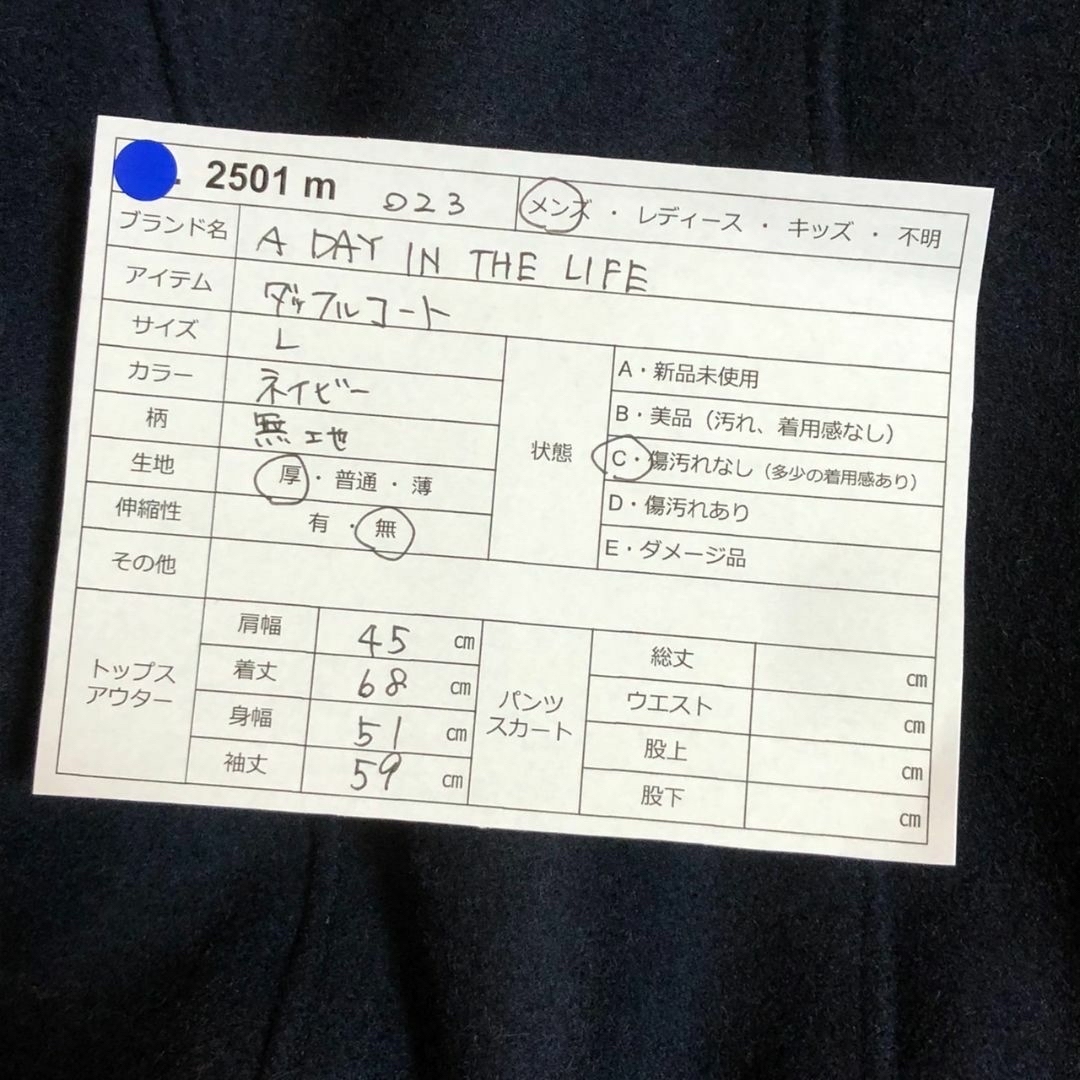 2501 m 023 メンズ・レディース・キッズ・不明
ブランド名 A DAY IN THE LIFE
アイテム ダッフルコート
サイズ L
カラー ネイビー
柄 無地
生地 厚・普通・薄
伸縮性 有・無
状態
A・新品未使用
B・美品（汚れ、着用感なし）
C・傷汚れなし（多少の着用感あり）
D・傷汚れあり
E・ダメージ品
その他
トップス
アウター
肩幅 45 cm
着丈 68 cm
身幅 51 cm
袖丈 59 cm
パンツ
スカート
総丈 cm
ウエスト cm
股上 cm
股下 cm